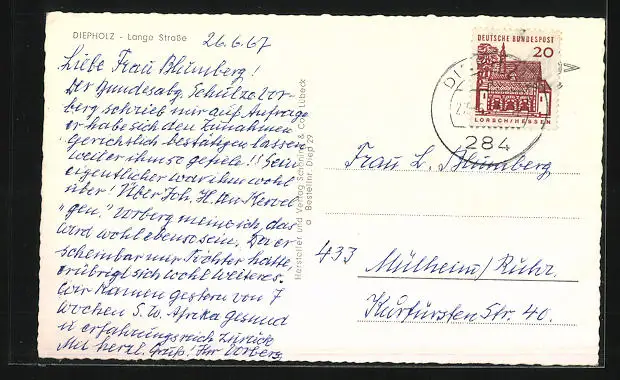 DIEPHOLZ - Lange Straße
26.6.67
Liebe Frau Blumberg!
Der Bundesabg. Schulze Vor-
berg schrieb mir auf Anfrage
er habe sich den Zunahmen
gerichtlich bestätigen lassen
weil er ihm so gefiele!! Sein
eigentlicher war ihm wohl
über! Über Joh. H. Am
"gen." Vorberg meine ich, das
wird wohl ebenso sein, Da er
scheinbar nur Tochter hatte,
erübrigt sich wohl weiteres.
Wir kamen gestern von 7
Wochen S.W. Afrika gesund
u erfahrungsreich zurück
Mit herzl. Gruß! Ihr Vorberg
Hersteller und Verlag Schöning & Co., Lübeck
Bestellnr. Diep 29
DEUTSCHE BUNDESPOST
20
LORSCH/HESSEN
284
Frau L. Blumberg
433 Mülheim/Ruhr.
Kurfürsten Str. 40.